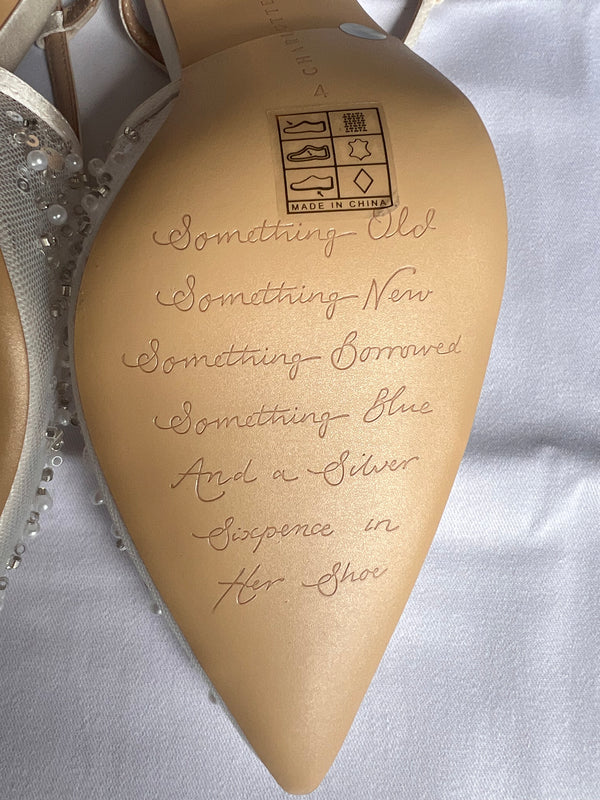 4
MADE IN CHINA
Something Old
Something New
Something Borrowed
Something Blue
And a Silver
Sixpence in
Her Shoe